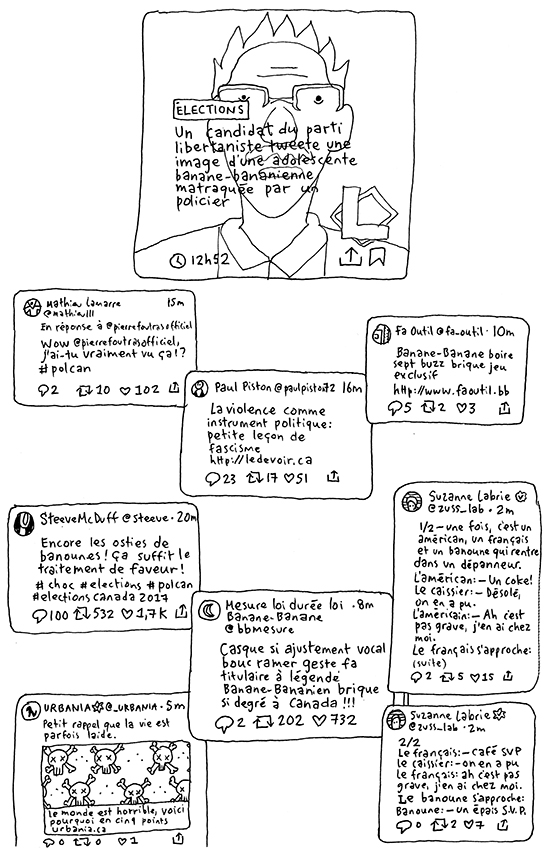 ELECTIONS
Un candidat du parti
libertaniste tweete une
image d'une adolescente
banane-bananienne
matraquée par un
policier
L
12h52
Mathieu Lamarre 15m
@mathieulll
En réponse à @pierrefoutrasofficiel
Wow @pierrefoutrasofficiel,
j'ai-tu vraiment vu ça!?
#polcan
2 10 102
Fa Outil @fa-outil · 10m
Banane-Banane boire
sept buzz brique jeu
exclusif
http://www.faoutil.bb
5 2 3
Paul Piston @paulpiston72 16m
La violence comme
instrument politique:
petite leçon de
fascisme
http://ledevoir.ca
23 17 51
SteeveMcDuff @steeve · 20m
Encore les osties de
banounes! Ça suffit le
traitement de faveur!
#choc #elections #polcan
#elections Canada 2017
100 532 1,7K
Suzanne Labrie
@zuss_lab · 2m
1/2 – une fois, c'est un
américan, un français
et un banoune qui rentre
dans un dépanneur.
L'américan: – Un coke!
Le caissier: – Désolé,
on en a pu.
L'américain: – Ah c'est
pas grave, j'en ai chez
moi.
Le français s'approche:
(suite)
2 5 15
Mesure loi durée loi · 8m
Banane-Banane
@bbmesure
Casque si ajustement vocal
bouc ramer geste fa
titulaire à légende
Banane-Bananien brique
si degré à Canada!!!
2 202 732
URBANIA @_URBANIA · 5m
Petit rappel que la vie est
parfois laide.
Le monde est horrible, voici
pourquoi en cinq points
urbania.ca
0 0 1
Suzanne Labrie
@zuss_lab · 2m
2/2
Le français: – Café SVP
Le caissier: – on en a pu
Le français: ah c'est pas
grave, j'en ai chez moi.
Le banoune s'approche:
Banoune: – Un épais S.V.P.
0 2 7